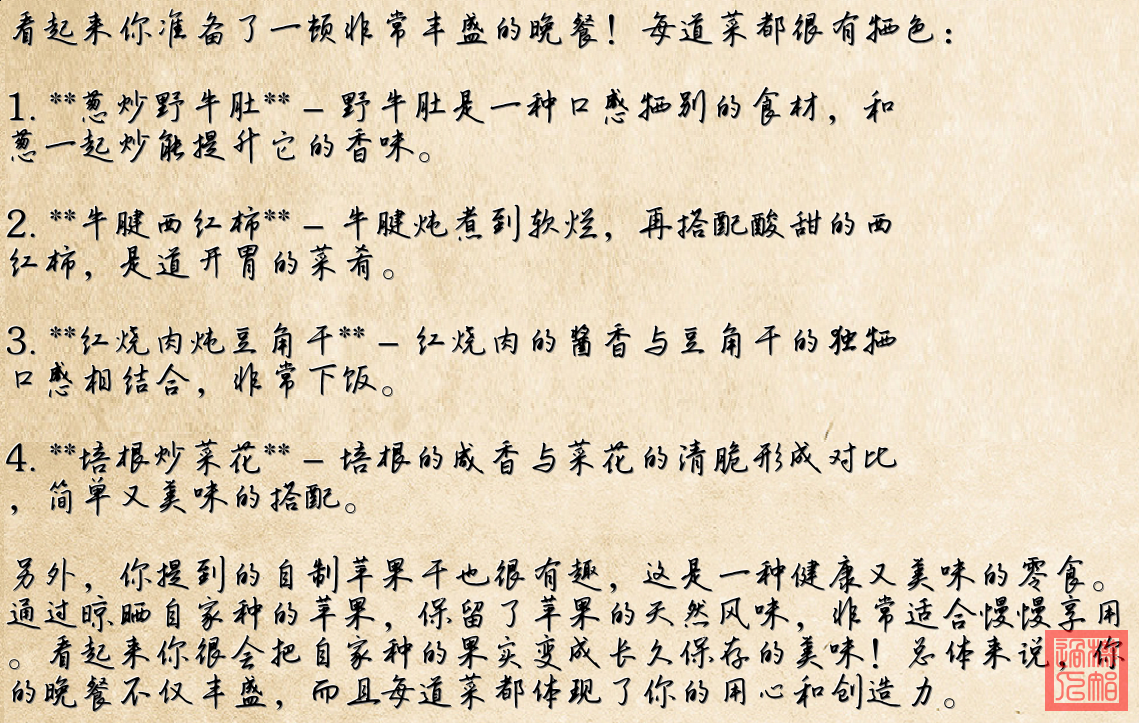 看起来你准备了一顿非常丰盛的晚餐！每道菜都很有特色：
1. **葱炒野牛肚** – 野牛肚是一种口感特别的食材，和
葱一起炒能提升它的香味。
2. **牛腱西红柿** – 牛腱炖煮到软烂，再搭配酸甜的西
红柿，是道开胃的菜肴。
3. **红烧肉炖豆角干** – 红烧肉的酱香与豆角干的独特
口感相结合，非常下饭。
4. **培根炒菜花** – 培根的咸香与菜花的清脆形成对比
，简单又美味的搭配。
另外，你提到的自制苹果干也很有趣，这是一种健康又美味的零食。
通过晾晒自家种的苹果，保留了苹果的天然风味，非常适合慢慢享用
。看起来你很会把自家种的果实变成长久保存的美味！总体来说，你
的晚餐不仅丰盛，而且每道菜都体现了你的用心和创造力。